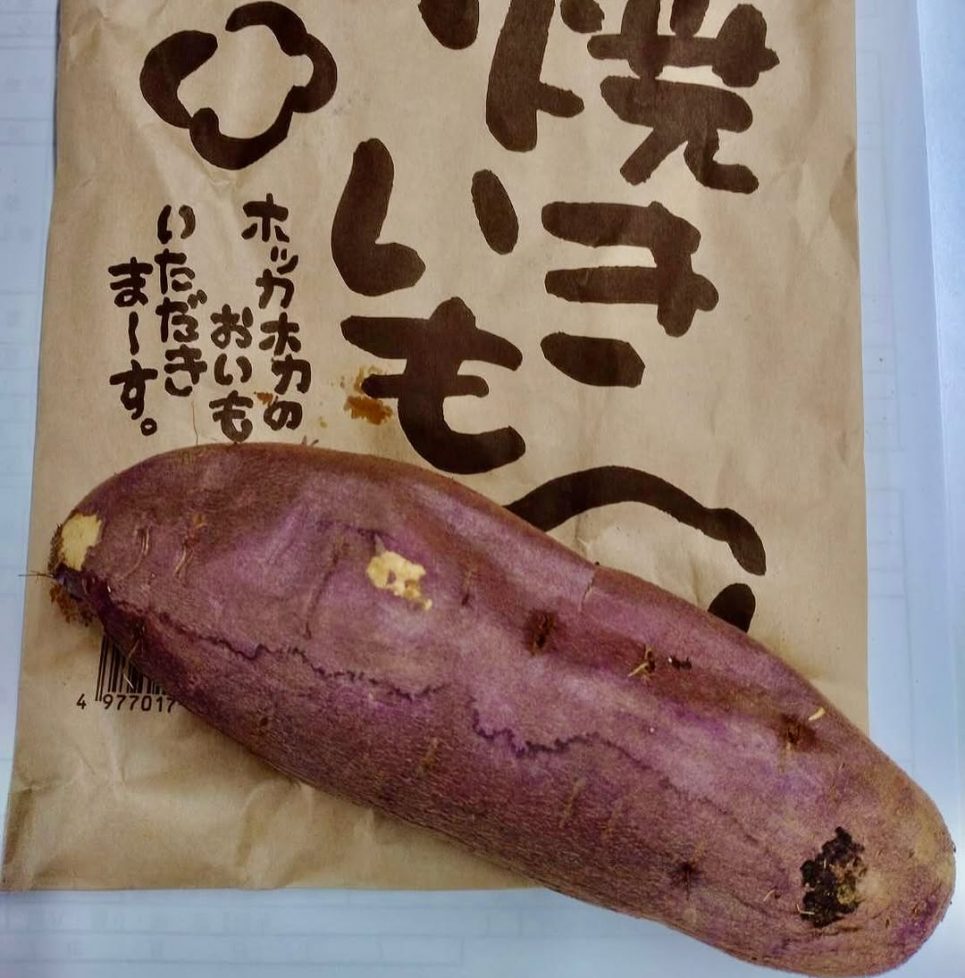 焼き
いも
ホッカホカの
おいも
いただき
まーす。
4 977017